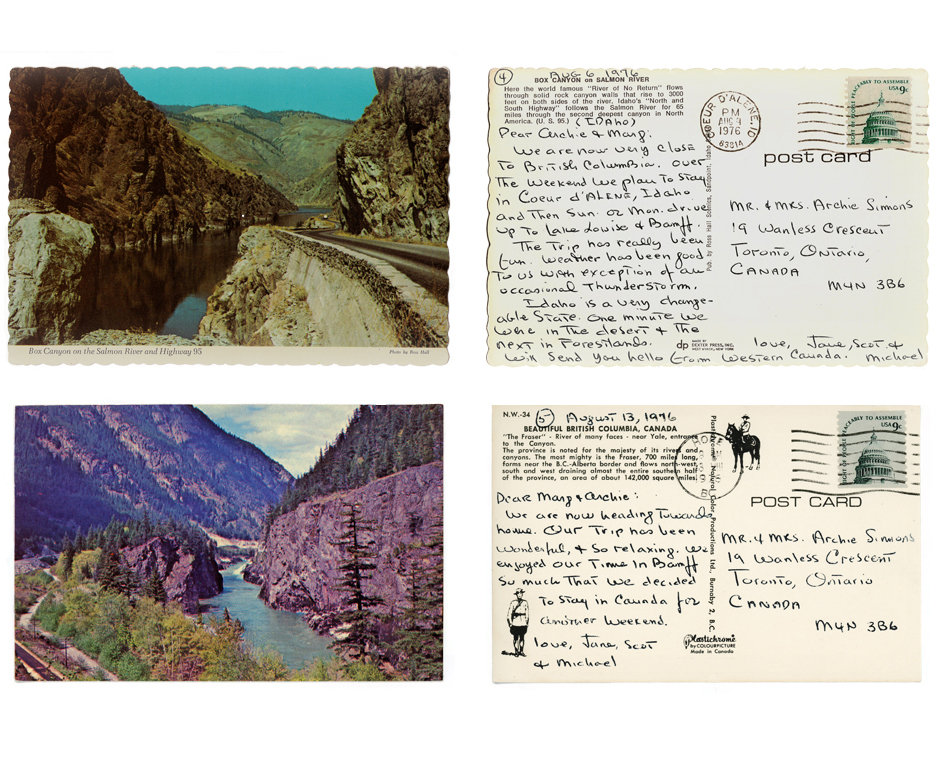 Box Canyon on the Salmon River and Highway 95
Photo by Ross Hall
4
AUG 6, 1976
BOX CANYON on SALMON RIVER
Here the world famous "River of No Return" flows
through solid rock canyon walls that rise to 3000
feet on both sides of the river. Idaho's "North and
South Highway" follows the Salmon River for 65
miles through the second deepest canyon in North
America. (U. S. 95.) (IDAHO)
Dear Archie & Marg:
We are now very close
to British Columbia. Over
the weekend we plan to stay
in Coeur d'ALENE, Idaho
and then Sun. or Mon. drive
up to Lake Louise & Banff.
The Trip has really been
fun. Weather has been good
to us with exception of an
occasional Thunderstorm.
Idaho is a very change-
able State. One minute we
were in the desert & the
next in Forestlands.
love, Jane, Scot &
Will send you hello from Western Canada. Michael
Pub. by Ross Hall Scenics, Sandpoint, Idaho
dp
MADE BY
DEXTER PRESS, INC.
WEST NYACK, NEW YORK
COEUR D'ALENE, ID
PM
AUG 9
1976
83814
PEACEABLY TO ASSEMBLE
USA 9c
post card
MR. & MRS. Archie Simmons
19 Wanless Crescent
Toronto, Ontario,
CANADA
M4N 3B6
N.W.-34
5
August 13, 1976
BEAUTIFUL BRITISH COLUMBIA, CANADA
"The Fraser" - River of many faces - near Yale, entrance
to the Canyon.
The province is noted for the majesty of its rivers and
canyons. The most mighty is the Fraser, 700 miles long,
forms near the B.C.-Alberta border and flows north-west,
south and west draining almost the entire southern half
of the province, an area of about 142,000 square miles.
Dear Marg & Archie:
We are now heading towards
home. Our Trip has been
wonderful, & so relaxing. We
enjoyed our Time in Banff
so much that we decided
to stay in Canada for
another weekend.
love, Jane, Scot
& Michael
Plastichrome Natural Color Productions Ltd., Burnaby 2, B.C.
Plastichrome
by COLOURPICTURE
Made in Canada
PEACEABLY TO ASSEMBLE
USA 9c
POST CARD
MR. & MRS. Archie Simmons
19 Wanless Crescent
Toronto, Ontario
CANADA
M4N 3B6